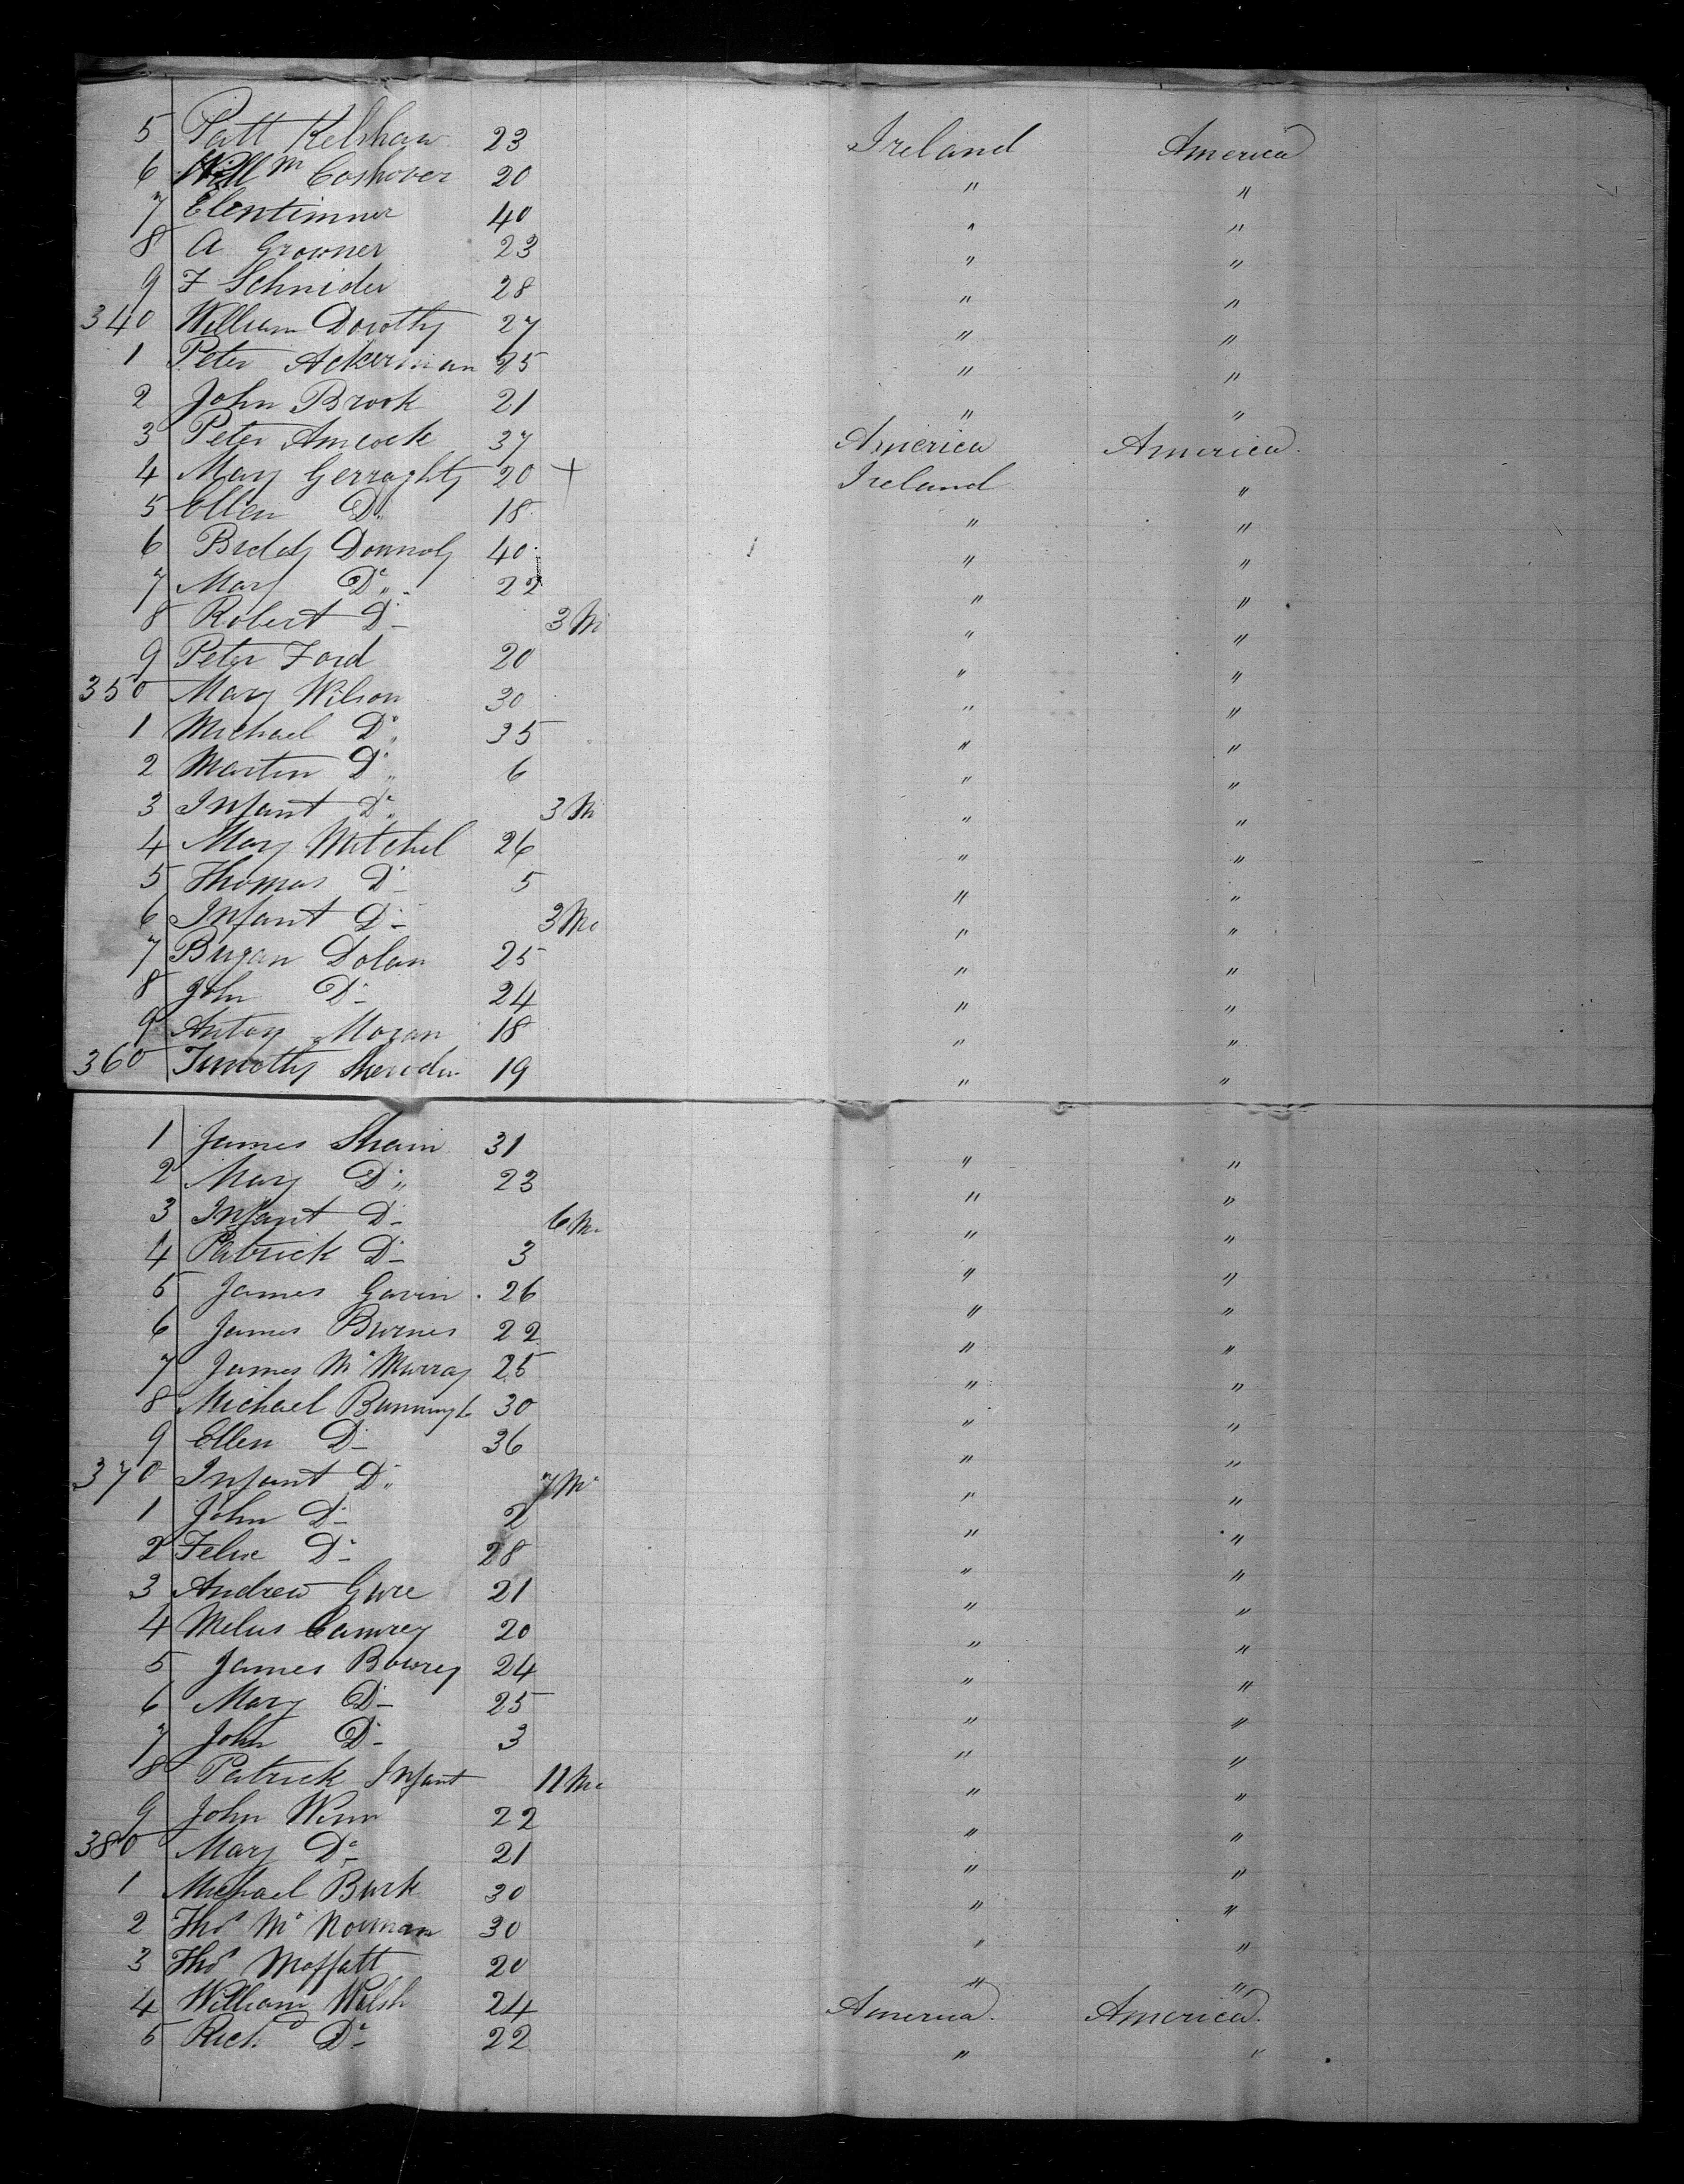 5 Patt Kelshaw 23 Ireland America
6 Willm Coshover 20 " "
7 Elentimner 40 " "
8 A Growner 23 " "
9 F Schnider 28 " "
340 William Dorothy 27 " "
1 Peter Ackerman 25 " "
2 John Brook 21 " "
3 Peter Amcock 37 America America
4 Mary Gerraghty 20 + Ireland "
5 Ellen Do 18 " "
6 Biddy Donnoly 40 " "
7 Mary Do 22 " "
8 Robert Do 3 M " "
9 Peter Ford 20 " "
350 Mary Wilson 30 " "
1 Michael Do 35 " "
2 Martin Do 6 " "
3 Infant Do 3 M " "
4 Mary Mitchel 26 " "
5 Thomas Do 5 " "
6 Infant Do 3 Mo " "
7 Dolan 25 " "
8 John Do 24 " "
9 Antony Moran 18 " "
360 Timothy Sheridin 19 " "
1 James Shain 31 " "
2 Mary Do 23 " "
3 Infant Do 6 Mo " "
4 Patrick Do 3 " "
5 James Gavin 26 " "
6 James Burnes 22 " "
7 James Mc Murray 25 " "
8 Michael 30 " "
9 Ellen Do 36 " "
370 Infant Do 7 Mo " "
1 John Do 2 " "
2 Felix Do 28 " "
3 Andrew Gure 21 " "
4 Melus Camrey 20 " "
5 James Bowrey 24 " "
6 Mary Do 25 " "
7 John Do 3 " "
8 Patrick Infant 11 Mo " "
9 John Winn 22 " "
380 Mary Do 21 " "
1 Michael Burk 30 " "
2 Thos Mc Norman 30 " "
3 Thos Moffatt 20 " "
4 William Walsh 24 America America
5 Richd Do 22 " "